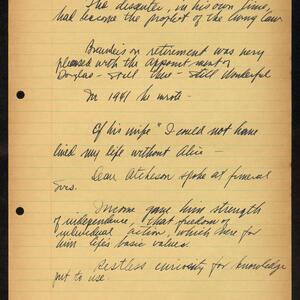 The disquiter, in his own time,
had become the prophet of the living law
Brandeis on retirement was very
pleased with the appointment of
Douglas - Still Here - Still Wonderful
In 1941 he wrote -
Of his wife "I could not have
lived my life without Alice -
Dean Atcheson spoke at funeral
svcs.
Income gave him strength
of independence, that freedom of
individual action, which were for
him life's basic values.
Restless curiosity for knowledge
put to use.